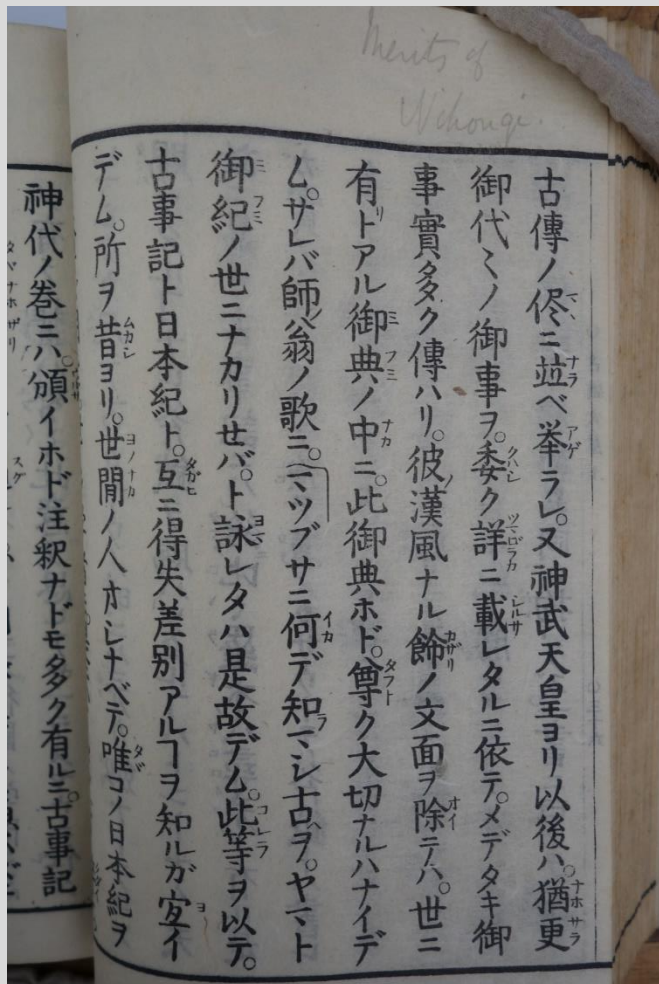 Merits of
Nihongi.
古傳ノ侭ニ竝ベ挙ラレ。又神武天皇ヨリ以後ハ。猶更
御代〻ノ御事ヲ。委ク詳ニ載レタルニ依テ。メデタキ御
事實多ク傳ハリ。彼漢風ナル餝ノ文面ヲ除テハ。世ニ
有トアル御典ノ中ニ。此御典ホド。尊ク大切ナルハナイデ
ム。サレバ師ノ翁ノ歌ニ。マツブサニ何デ知マシ古ヲ。ヤマト
御紀ノ世ニナカリせバ。ト詠レタハ是故デム。此等ヲ以テ。
古事記ト日本紀ト。互ニ得失差別アルヿヲ知ルガ宜イ
デム。所ヲ昔ヨリ。世間ノ人オシナベテ。唯コノ日本紀ヲ
神代ノ巻ニハ。頒イホド注釈ナドモ多ク有ルニ。古事記